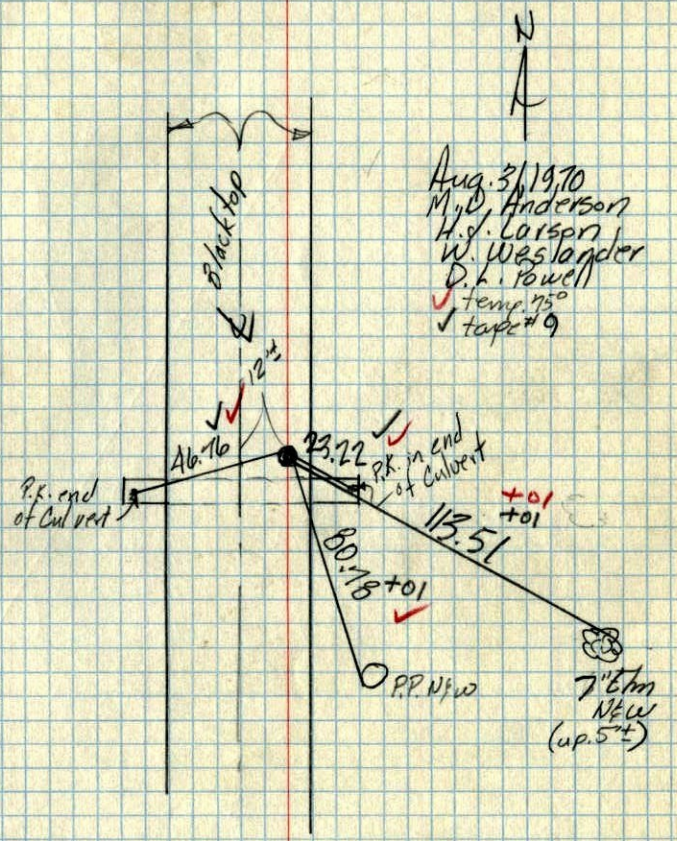 N
Aug. 31, 1970
M.D. Anderson
H.J. Carson
W. Weslander
D.L. Powell
✓ temp. 75°
✓ tape #9
Blacktop
℄
12'±
46.76 ✓✓
23.22 ✓✓
P.K. in end
of Culvert
P.K. end
of Culvert
+01
+01
113.51
80.78 +01
✓
P.P. N&W
7" Elm
N&W
(up.5'±)